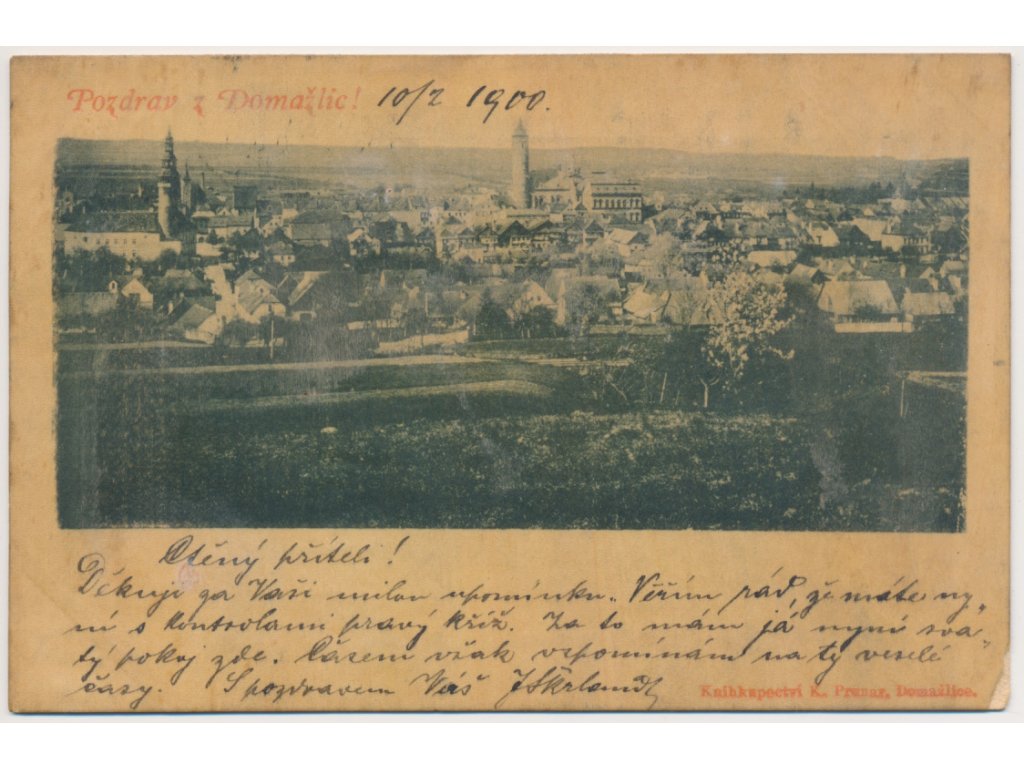 Pozdrav z Domažlic! 10/2 1900.
Ctěný příteli!
Děkuji za Vaši milou upomínku. Věřím rád, že máte ny„
ní s kontrolami pravý kříž. Za to mám já nyní sva„
tý pokoj zde. Časem však vzpomínám na ty veselé
časy. S pozdravem Váš
Knihkupectví K. Prunar, Domažlice.